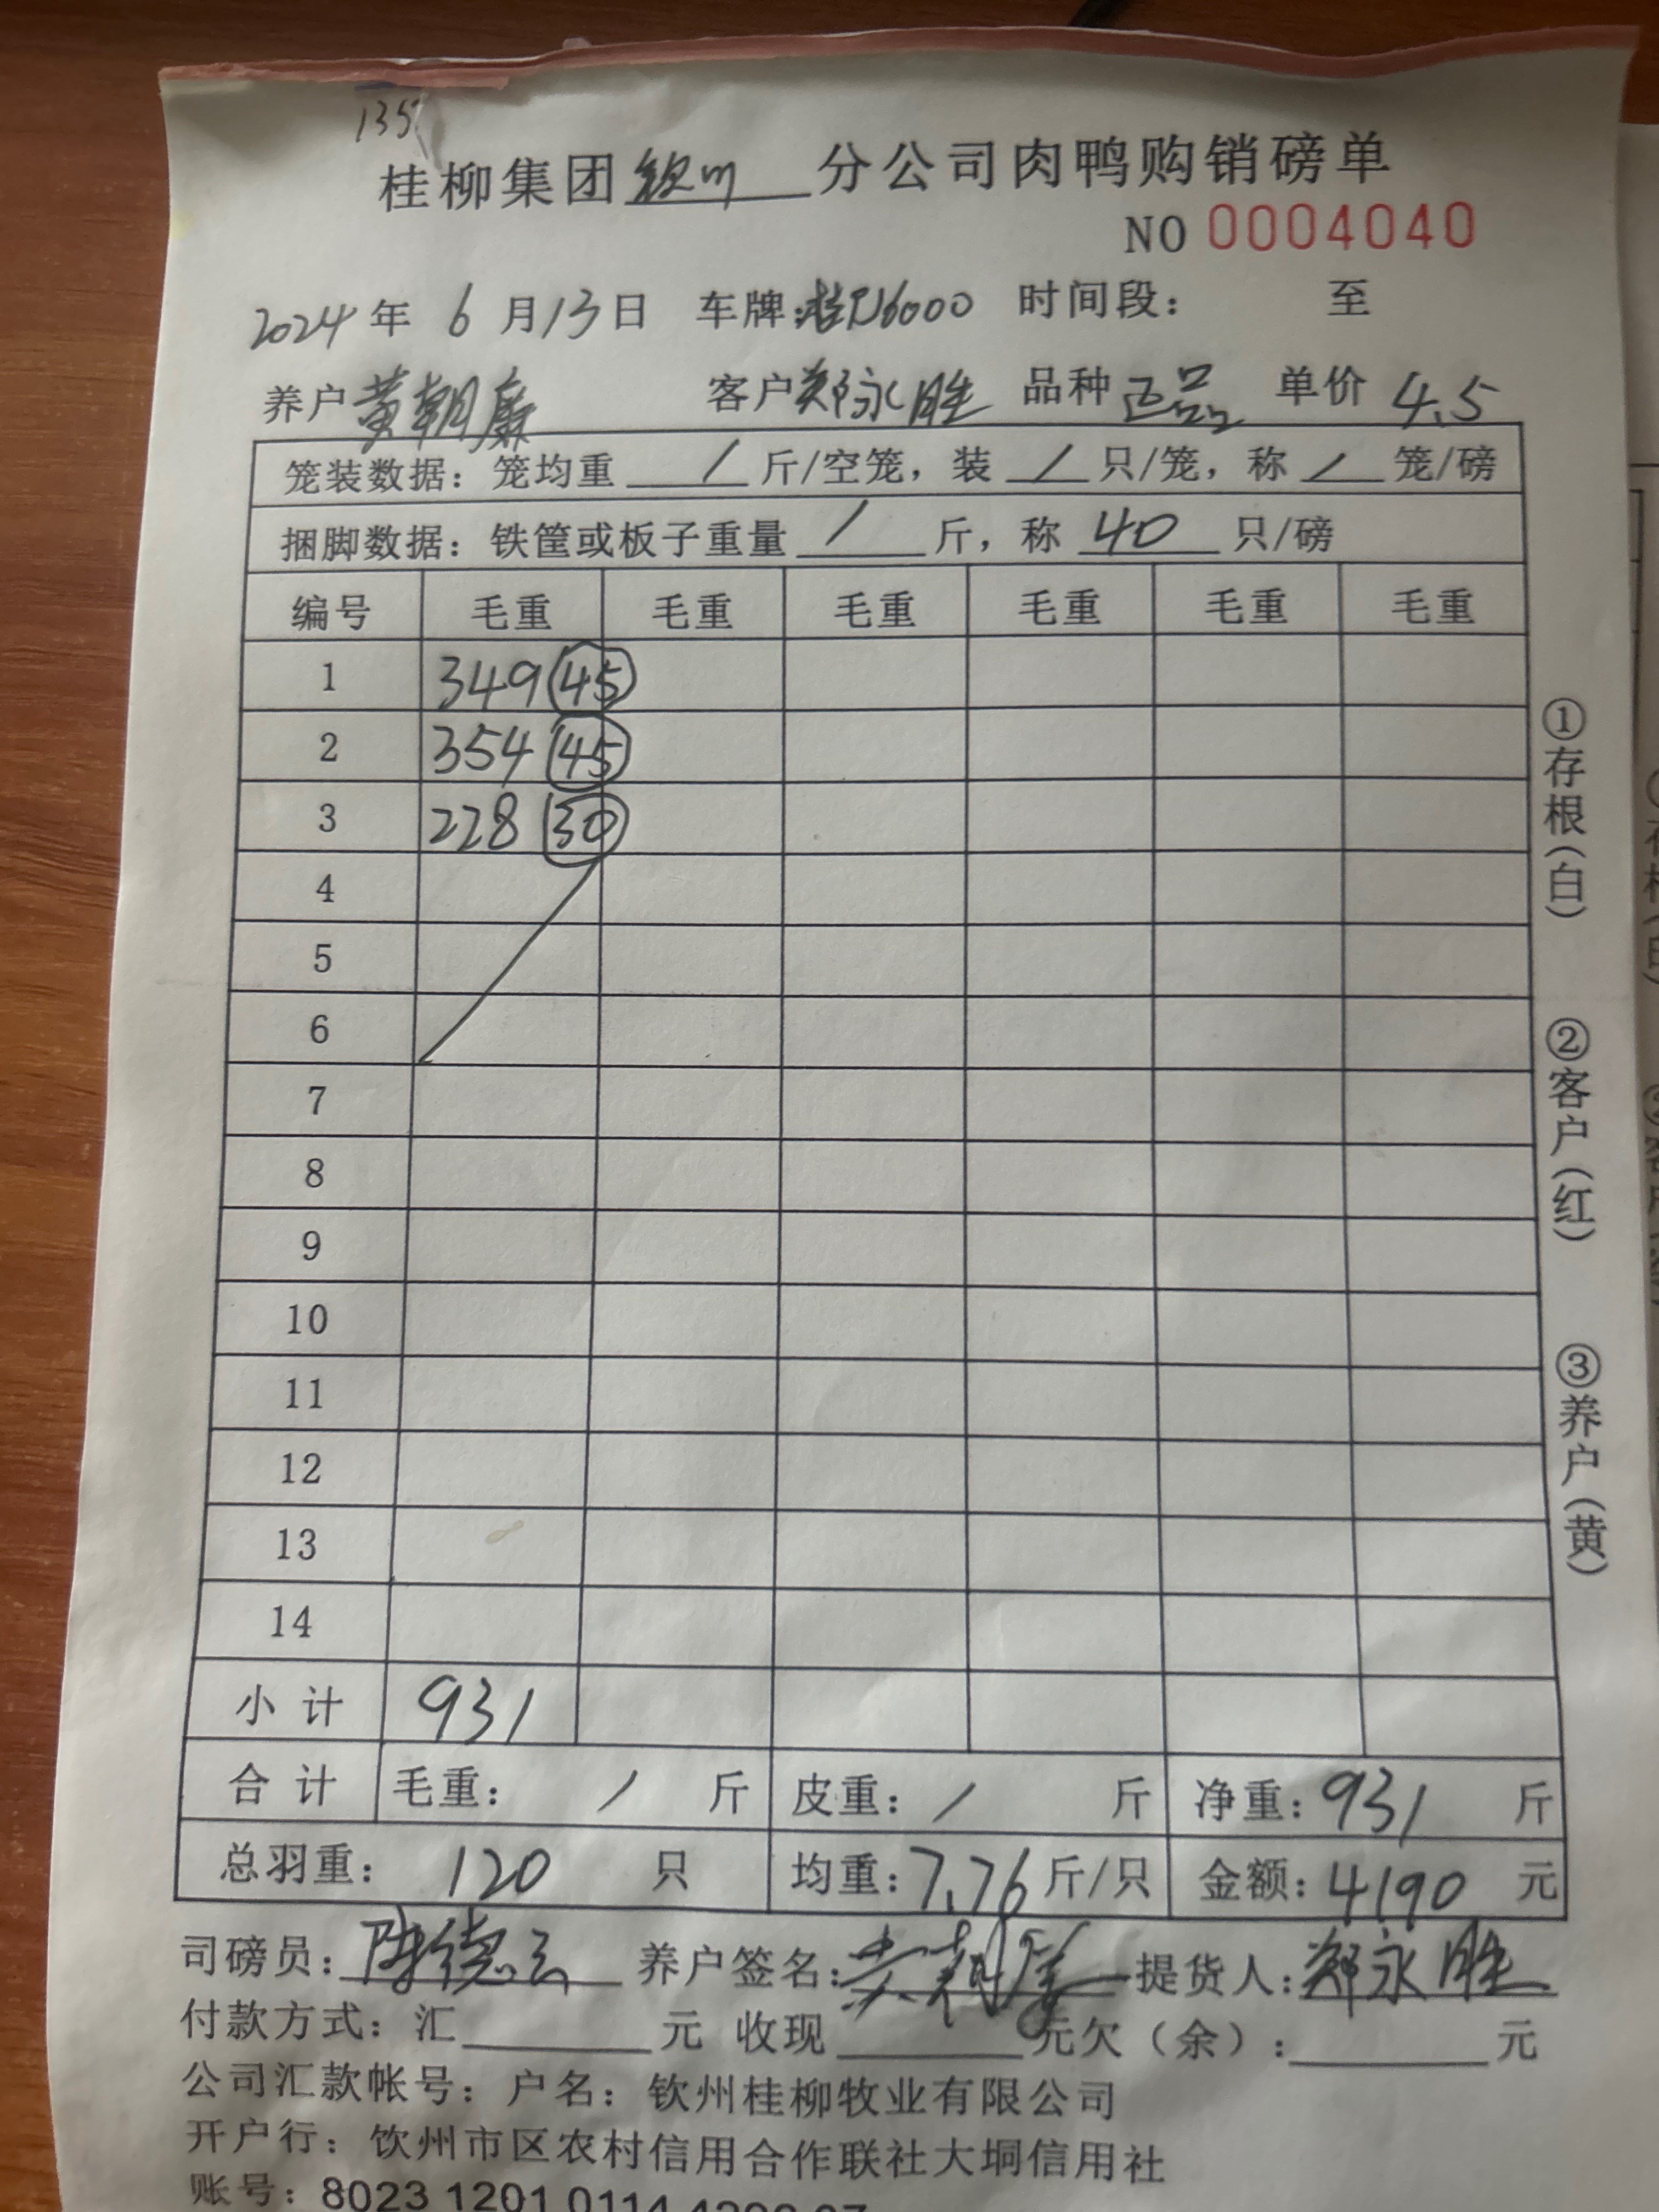 135
桂柳集团钦州分公司肉鸭购销磅单
NO 0004040
2024年 6月13日 车牌:桂 16000 时间段: 至
养户 黄朝廉 客户 郑永胜 品种 正品 单价 4.5
笼装数据: 笼均重 / 斤/空笼, 装 / 只/笼, 称 / 笼/磅
捆脚数据: 铁筐或板子重量 / 斤, 称 40 只/磅
编号 毛重 毛重 毛重 毛重 毛重 毛重
1 349 45
2 354 45
3 228 30
4
5
6
7
8
9
10
11
12
13
14
小计 931
合计 毛重: / 斤 皮重: / 斤 净重: 931 斤
总羽重: 120 只 均重: 7.76 斤/只 金额: 4190 元
司磅员: 陈德 养户签名: 提货人: 郑永胜
付款方式: 汇 元 收现 元欠(余): 元
公司汇款帐号: 户名: 钦州桂柳牧业有限公司
开户行: 钦州市区农村信用合作联社大垌信用社
账号: 8023 1201 0114
①存根(白)
②客户(红)
③养户(黄)